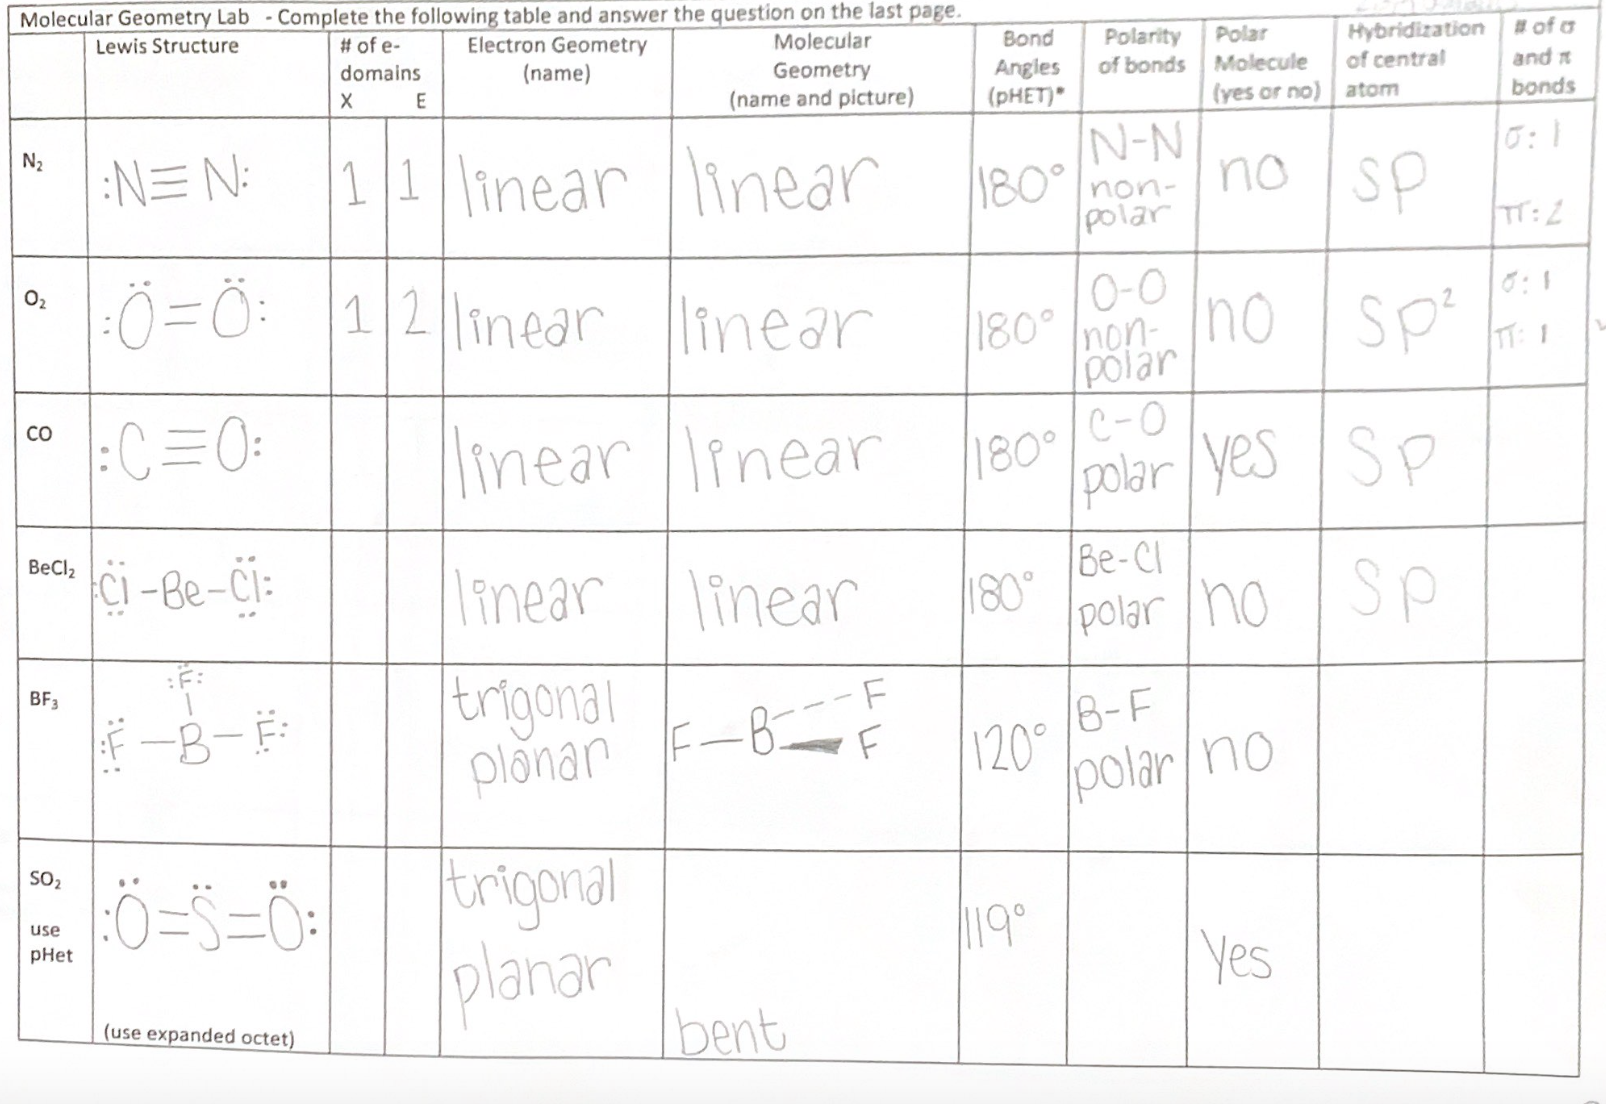 Molecular Geometry Lab - Complete the following table and answer the question on the last page.
Lewis Structure
# of e-
domains
X E
Electron Geometry
(name)
Molecular
Geometry
(name and picture)
Bond
Angles
(pHET)*
Polarity
of bonds
Polar
Molecule
(yes or no)
Hybridization
of central
atom
# of σ
and π
bonds
N₂
:N≡N:
1
1
linear
linear
180°
N-N
non-
polar
no
sp
σ: 1
π: 2
O₂
:Ö=Ö:
1
2
linear
linear
180°
O-O
non-
polar
no
sp²
σ: 1
π: 1
CO
:C≡O:
linear
linear
180°
C-O
polar
yes
sp
BeCl₂
:Cl-Be-Cl:
linear
linear
180°
Be-Cl
polar
no
sp
BF₃
:F:
:F-B-F:
trigonal
planar
F
F-B
F
120°
B-F
polar
no
SO₂
use
pHet
:Ö=S̈=Ö:
(use expanded octet)
trigonal
planar
bent
119°
yes